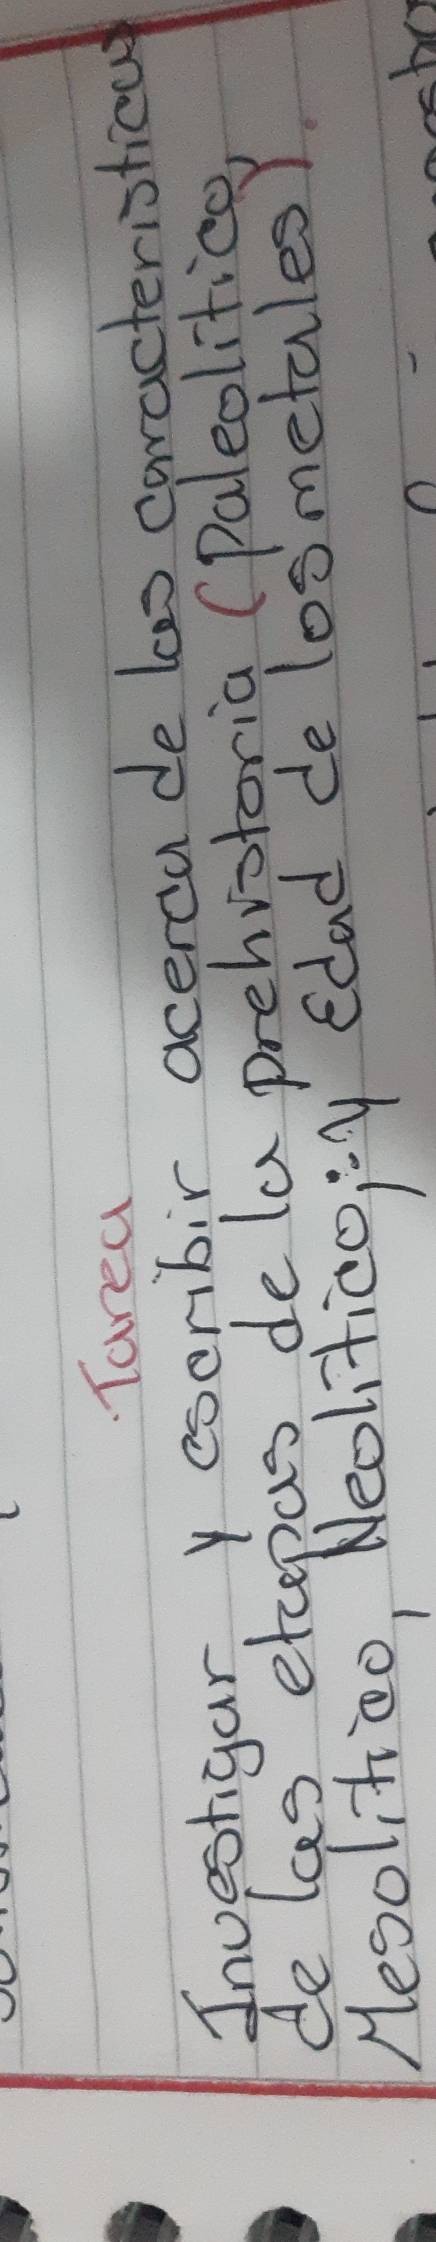 Tarea
Investigar y escribir acerca de las caracteristicas
de las etapas de la prehistoria (Paleolitico,
Mesolitico, Neolitico; y Edad de los metales).